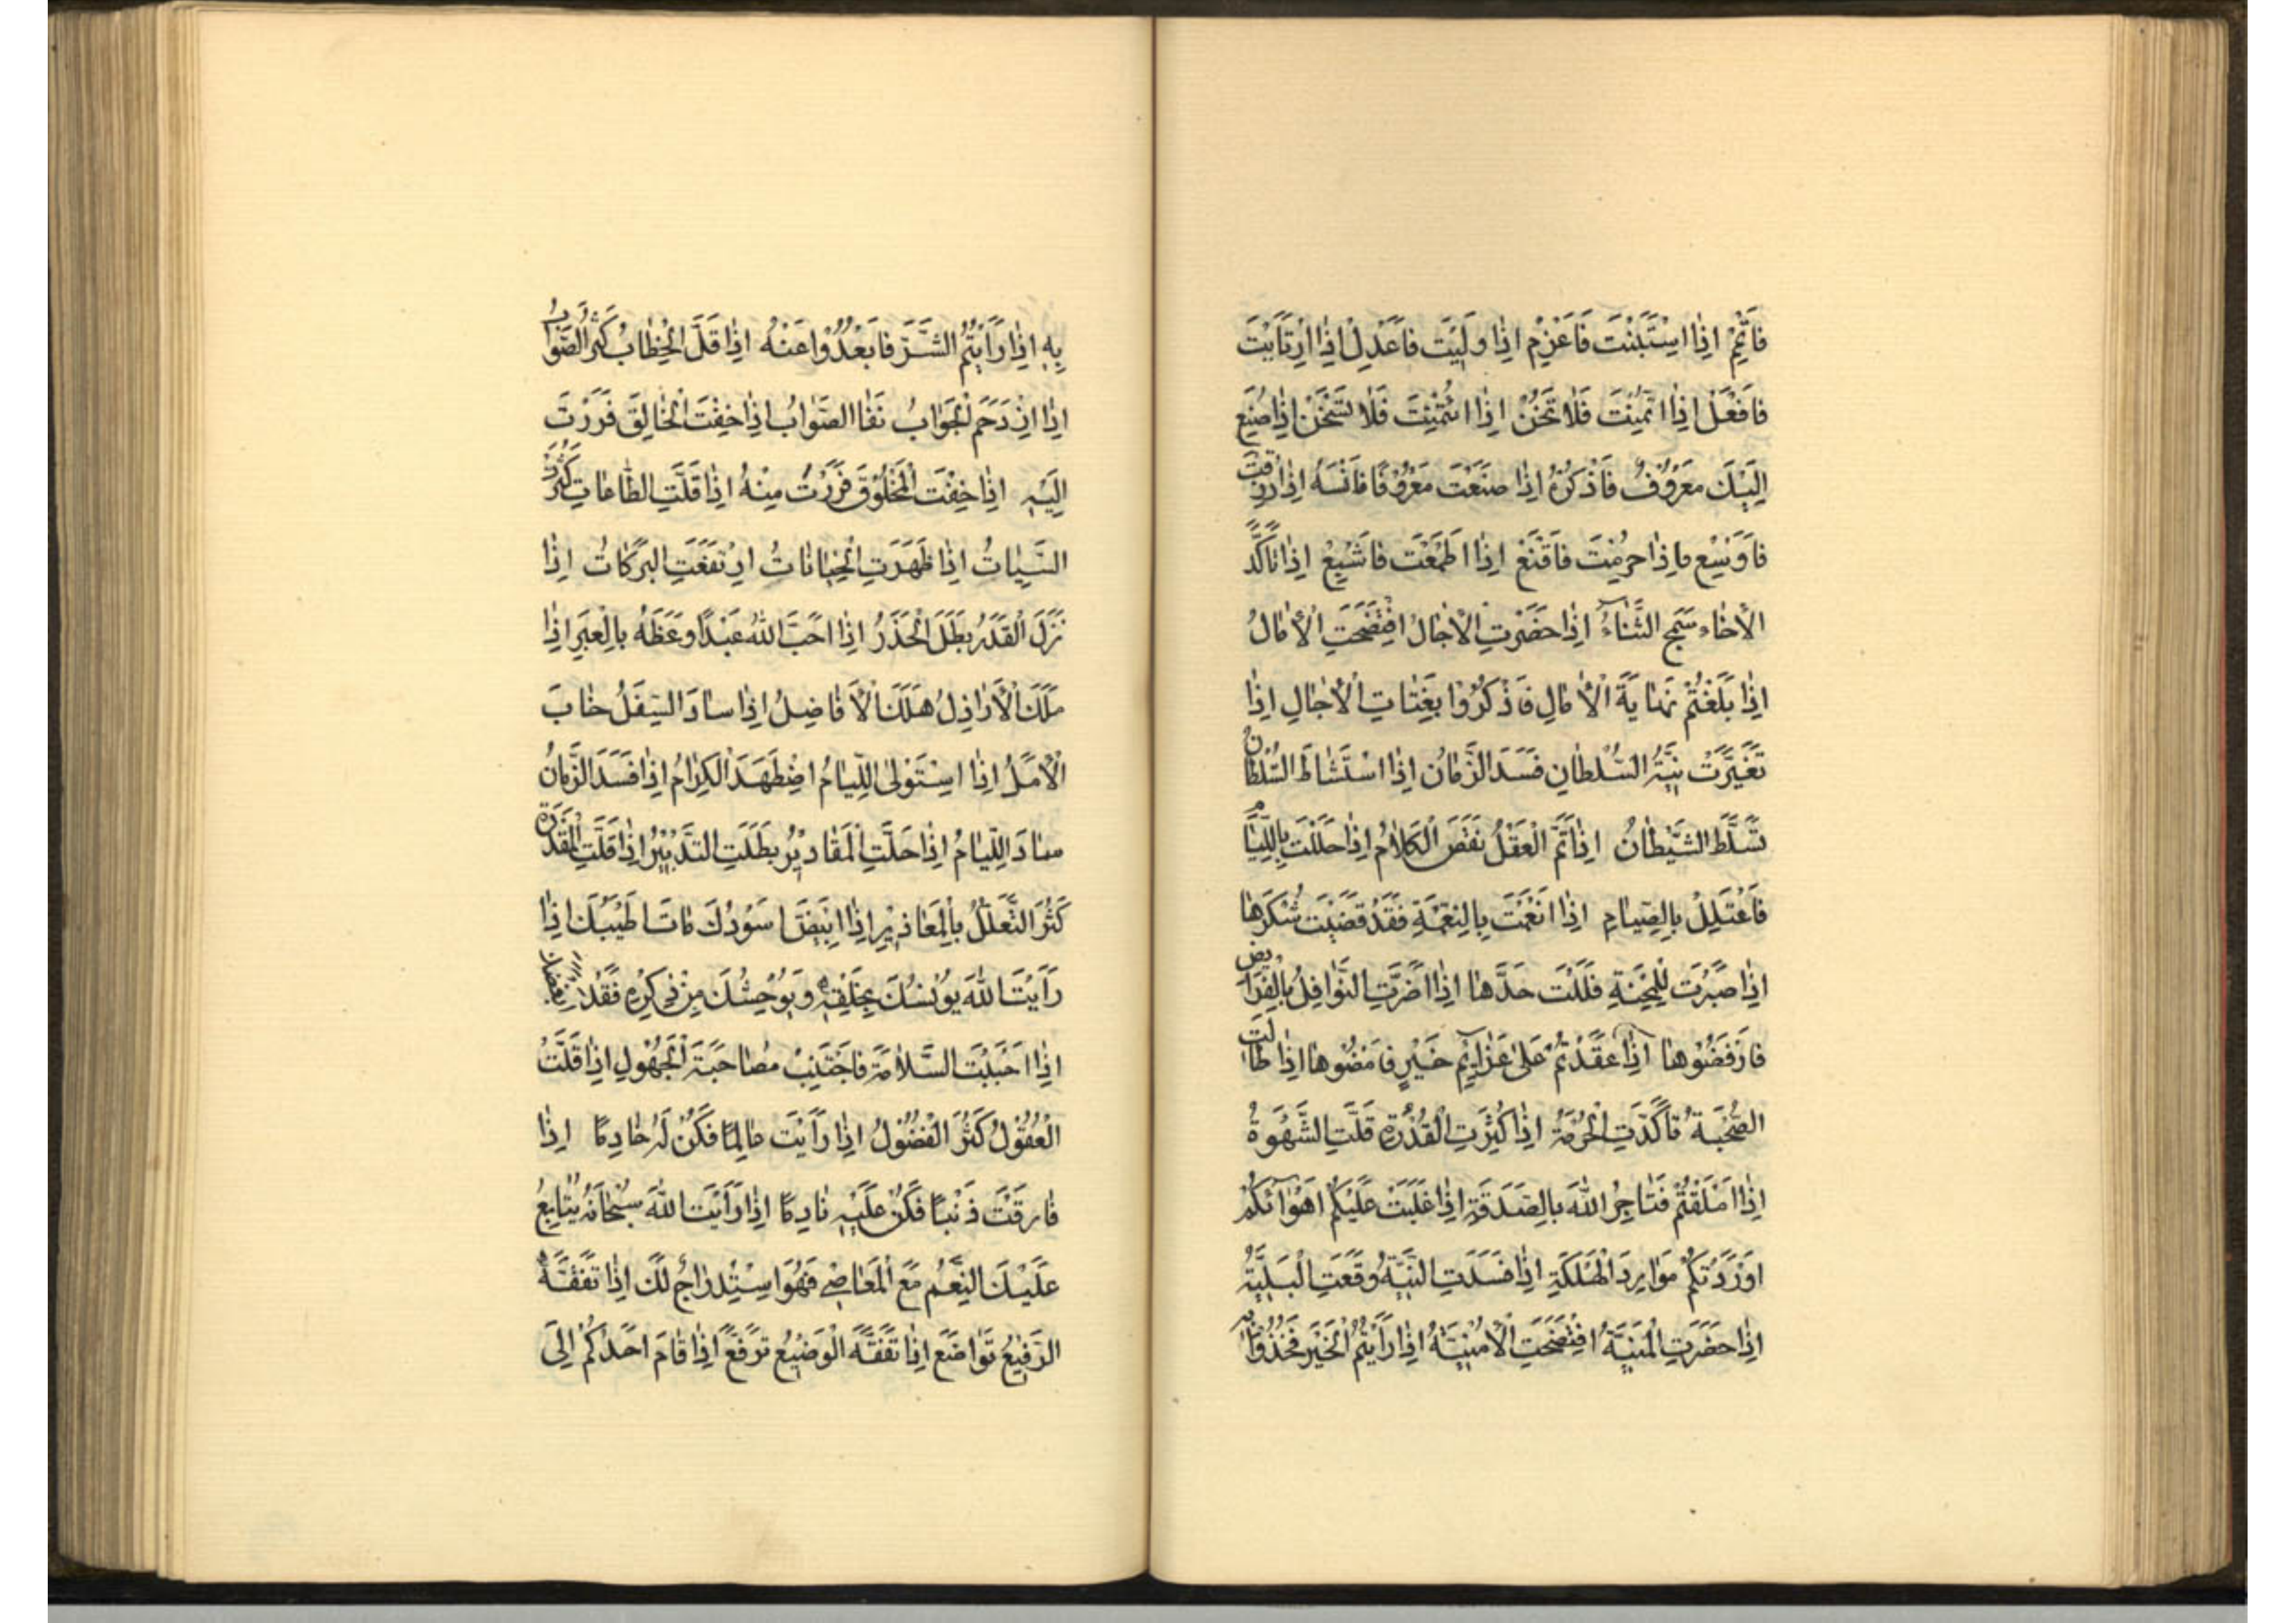 فَاَتْمِمْ اِذَا اسْتَبَنْتَ فَاَعْزِمْ اِذَا وَلَيْتَ فَاعْدِلْ اِذَا ارْتَأَيْتَ
فَافْعَلْ اِذَا ائْتُمِنْتَ فَلَا تَخُنْ اِذَا ائْتَمَنْتَ فَلَا تَسْتَخِنْ اِذَا صُنِعَ
اِلَيْكَ مَعْرُوفٌ فَاذْكُرْهُ اِذَا صَنَعْتَ مَعْرُوفًا فَانْسَهُ اِذَا رُزِقْتَ
فَاَوْسِعْ وَاِذَا حُرِمْتَ فَاقْنَعْ اِذَا اَطْعَمْتَ فَاَشْبِعْ اِذَا تَاَكَّدَ
الْاِخَاءِ سَمُجَ الثَّنَاءُ اِذَا حَضَرَتِ الْاٰجَالُ افْتَضَحَتِ الْاٰمَالُ
اِذَا بَلَغْتُمْ نِهَايَةَ الْاٰمَالِ فَاذْكُرُوا بَغَتَاتِ الْاٰجَالِ اِذَا
تَغَيَّرَتْ نِيَّةُ السُّلْطَانِ فَسَدَ الزَّمَانُ اِذَا اسْتَشَاطَ السُّلْطَانُ
تَسَلَّطَ الشَّيْطَانُ اِذَا تَمَّ الْعَقْلُ نَقَصَ الْكَلَامُ اِذَا حَلَلْتَ بِاللِّئَامِ
فَاعْتَلِلْ بِالصِّيَامِ اِذَا اَنْعَمْتَ بِالنِّعْمَةِ فَقَدْ قَضَيْتَ شُكْرَهَا
اِذَا صَبَرْتَ لِلْمِحْنَةِ فَلَلْتَ حَدَّهَا اِذَا اَضَرَّتِ النَّوَافِلُ بِالْفَرَايِضِ
فَارْفَضُوهَا اِذَا عَقَدْتُمْ عَلَى عَزَايِمِ خَيْرٍ فَامْضُوهَا اِذَا طَالَتِ
الصُّحْبَةُ تَاَكَّدَتِ الْحُرْمَةُ اِذَا كَثُرَتِ الْقُدْرَةُ قَلَّتِ الشَّهْوَةُ
اِذَا اَمْلَقْتُمْ فَتَاجِرُوا اللّٰهَ بِالصَّدَقَةِ اِذَا غَلَبَتْ عَلَيْكُمْ اَهْوَاۤئُكُمْ
اَوْرَدَتْكُمْ مَوَارِدَ الْهَلَكَةِ اِذَا فَسَدَتِ النِّيَّةُ وَقَعَتِ الْبَلِيَّةُ
اِذَا حَضَرَتِ الْمَنِيَّةُ افْتَضَحَتِ الْاُمْنِيَّةُ اِذَا رَاَيْتُمُ الْخَيْرَ فَخُذُوا
بِهِ اِذَا رَاَيْتُمُ الشَّرَّ فَابْعُدُوا عَنْهُ اِذَا قَلَّ الْخِطَابُ كَثُرَ الصَّوَابُ
اِذَا ازْدَحَمَ الْجَوَابُ نَفَا الصَّوَابُ اِذَا خِفْتَ الْخَالِقَ فَرَرْتَ
اِلَيْهِ اِذَا خِفْتَ الْمَخْلُوقَ فَرَرْتَ مِنْهُ اِذَا قَلَّتِ الطَّاعَاتِ كَثُرَتِ
السَّيِّاتُ اِذَا ظَهَرَتِ الْخِيَانَاتُ ارْتَفَعَتِ الْبَرَكَاتُ اِذَا
نَزَلَ الْقَدَرُ بَطَلَ الْحَذَرُ اِذَا اَحَبَّ اللّٰهُ عَبْدًا وَعَظَهُ بِالْعِبَرِ اِذَا
مَلَكَ الْاَرَاذِلُ هَلَكَ الْاَفَاضِلُ اِذَا سَادَ السِّفَلُ خَابَ
الْاَمَلُ اِذَا اسْتَوْلَى اللِّيَامُ اضْطَهَدَ الْكِرَامُ اِذَا فَسَدَ الزَّمَانُ
سَادَ اللِّيَامُ اِذَا حَلَّتِ الْمَقَادِيرُ بَطَلَتِ التَّدْبِيرُ اِذَا قَلَّتِ الْمَقْدُرَةُ
كَثُرَ التَّعَلُّلُ بِالْمَعَاذِيرِ اِذَا ابْيَضَّ اَسْوَدُكَ مَاتَ اَطْيَبُكَ اِذَا
رَاَيْتَ اللّٰهَ يُوْنِسُكَ بِخَلْقِهِ وَيُوْحِشُكَ مِنْ ذِكْرِهِ فَقَدْ
اِذَا اَحْبَبْتَ السَّلَامَةَ فَاجْتَنِبْ مُصَاحَبَةَ الْجَهُولِ اِذَا قَلَّتْ
الْعُقُولُ كَثُرَ الْفُضُولُ اِذَا رَاَيْتَ عَالِمًا فَكُنْ لَهُ خَادِمًا اِذَا
قَارَفْتَ ذَنْبًا فَكُنْ عَلَيْهِ نَادِمًا اِذَا رَاَيْتَ اللّٰهَ سُبْحَانَهُ يُتَابِعُ
عَلَيْكَ النِّعَمَ مَعَ الْمَعَاصِي فَهُوَ اسْتِدْرَاجٌ لَكَ اِذَا تَفَقَّهَ
الرَّفِيعُ تَوَاضَعَ اِذَا تَفَقَّهَ الْوَضِيعُ تَرَفَّعَ اِذَا قَامَ اَحَدُكُمْ اِلَى